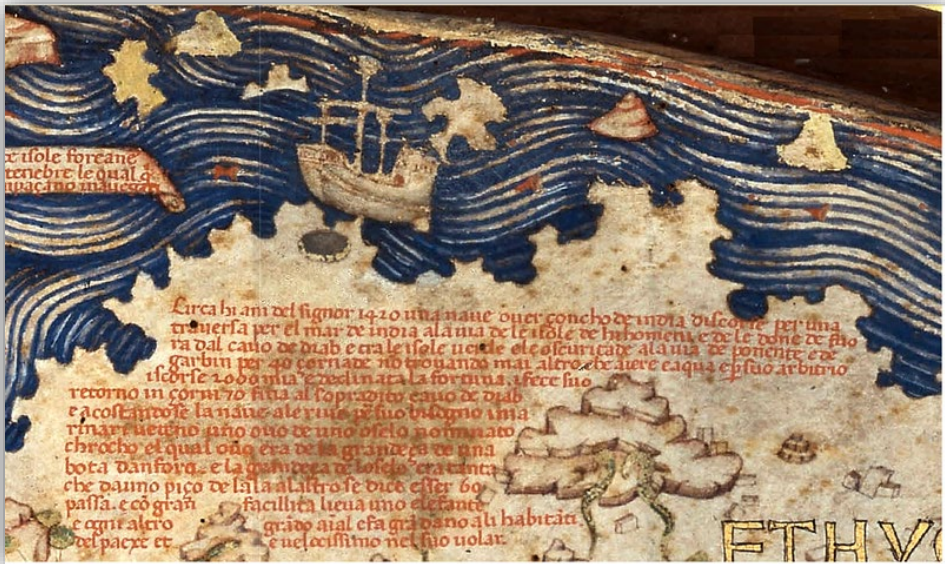 te isole foreane
tenebre le qual
navegar
Circa hi ani del signor 1420 una naue ouer çoncho de india discorse per una
trauersa per el mar de india a la uia de le isole de hi homeni e de le done de fuo
ra dal cauo de diab e tra le isole uerde e le oscuritade a la uia de ponente e de
garbin per 40 çornade no trouando mai altro che aiere e aqua e per suo arbitrio
iscorse 2000 mia e declinata la fortuna i fece suo
retorno in çorni 70 fina al sopradito cauo de diab
e acostandose la naue a le riue per suo bisogno i ma
rinari uedeno uno ouo de uno oselo nominato
chrocho el qual ouo era de la grandeça de una
bota danfora e la grandeça de loselo era tanta
che da uno piço de lala a laltro se dice esser 60
passa. e cō gran facillita lieua uno elefante
e ogni altro grādo aial e fa grā dano a li habitāti
del paexe et e uelocissimo nel suo uolar.
ETHY